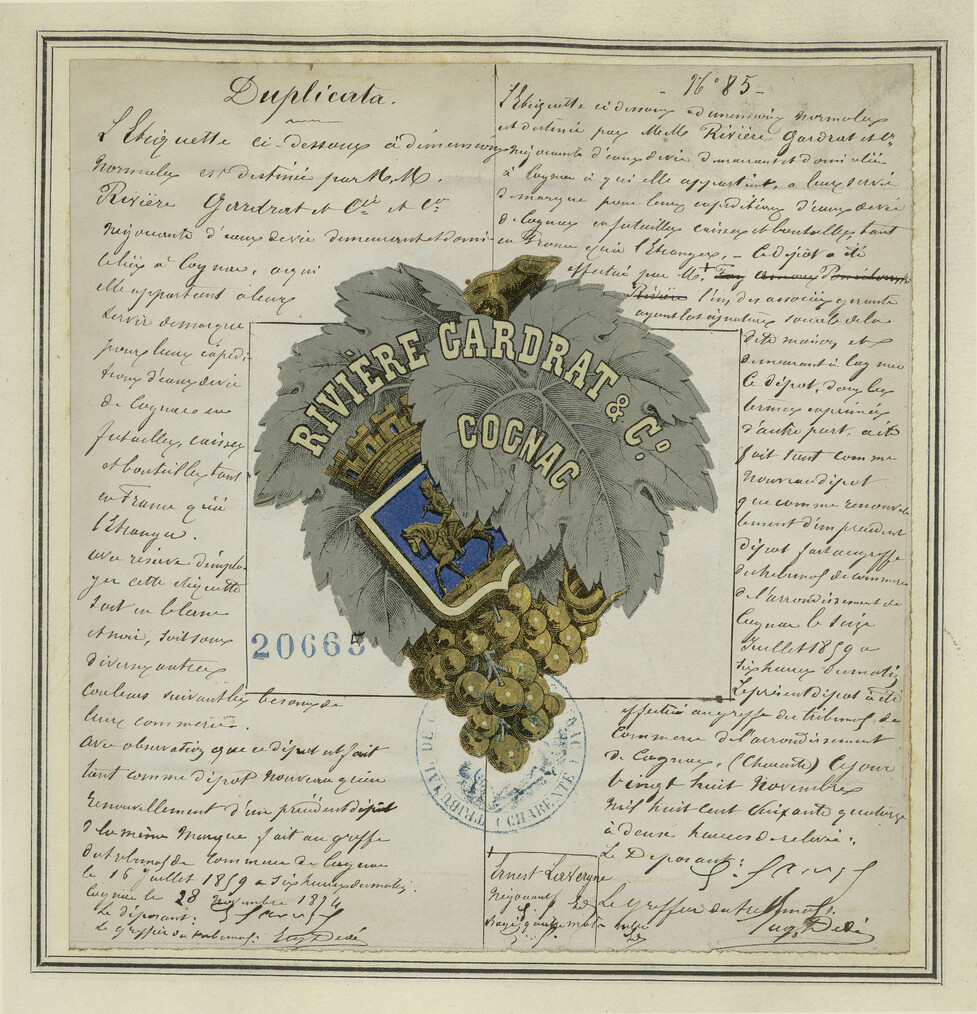 Duplicata.
L'Etiquette ci-dessous à dimensions
Normales est destinée par M.M.
Rivière Gardrat et Cie et Co
négociants d'eaux de vie demeurant et domi-
ciliés à Cognac, à qui
elle appartient à leur
servir de marque
pour leurs expédi-
tions d'eaux de vie
de Cognac en
futailles, caisses
et bouteilles tant
en France qu'à
l'Etranger.
avec réserve d'emplo-
yer cette étiquette
soit en blanc
et noir, soit sous
diverses autres
couleurs suivant les besoins de
leur commerce.
avec observation que ce dépôt est fait
tant comme dépôt nouveau qu'en
renouvellement d'un précédent dépôt
de la même marque fait au greffe
du tribunal de commerce de Cognac
le 16 juillet 1859 à six heures du matin.
Cognac le 28 novembre 1874
Le déposant:
Le Greffier du tribunal: Eug Dedé
N° 85
L'Etiquette ci-dessous à dimensions normales
est destinée par M.M. Rivière Gardrat et Co
négociants d'eaux de vie demeurant et domiciliés
à Cognac à qui elle appartient, à leur servir
de marque pour leurs expéditions d'eaux de vie
de Cognac en futailles caisses et bouteilles tant
en France qu'à l'Etranger, - Ce dépôt a été
effectué par M.
Rivière l'un des associés gérants
ayant la signature sociale de la
dite maison et
demeurant à Cognac
Ce dépôt, dans les
termes exprimés
d'autre part, a été
fait tant comme
nouveau dépôt
que comme renouvel-
lement d'un précédent
dépôt fait au greffe
du tribunal de commerce
de l'arrondissement de
Cognac le seize
Juillet 1859 à
six heures du matin,
Le présent dépôt a été
effectué au greffe du tribunal de
Commerce de l'arrondissement
de Cognac, (Charente) ce jour
vingt huit Novembre
mil huit cent soixante quatorze
à deux heures de relevée:
Le Déposant:
Le Greffier du tribunal:
Eug Dedé
RIVIÈRE GARDRAT & Co.
COGNAC
20665
TRIBUNAL DE
CHARENTE
Ernest Lavergne
Négociant